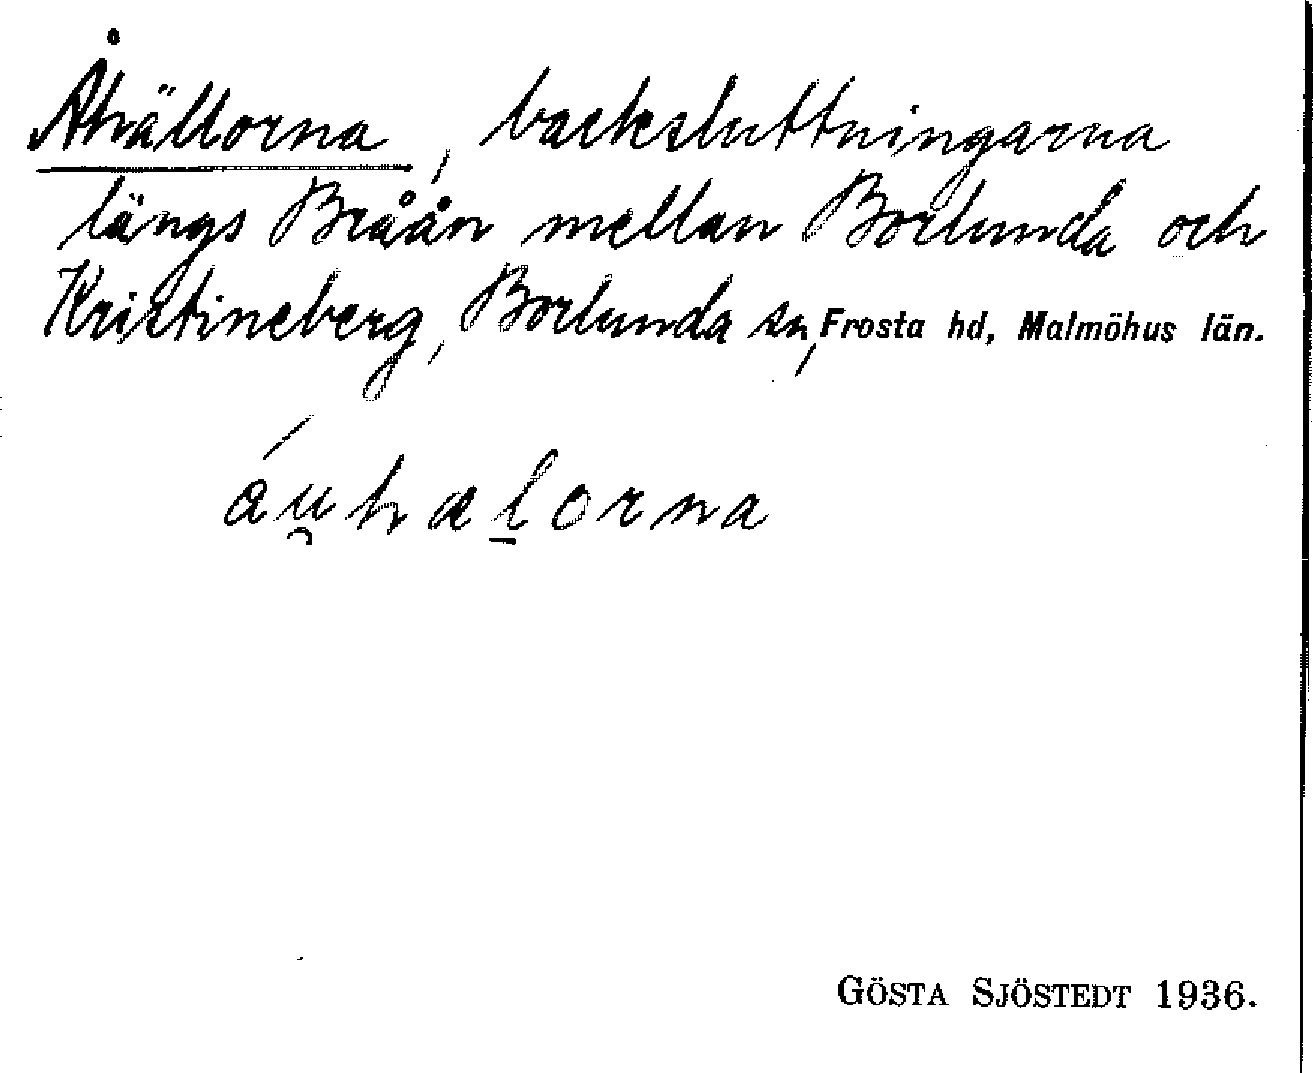 Åhällorna, backsluttningarna
längs Bråån mellan Borlunda och
Kristineberg, Borlunda sn, Frosta hd, Malmöhus län.
áu̯hæl̲orna
GÖSTA SJÖSTEDT 1936.